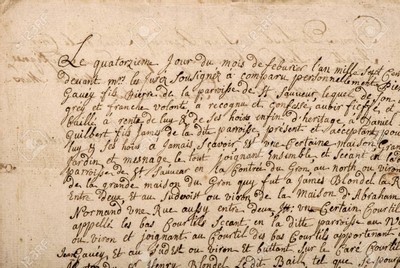 Le quatorzieme Jour du mois de feburier l'an mille Sept Cent
devant moy les Jurez Soussignez a comparu personnellement Pier
Gavey fils Pierre de la paroisse de St Sauveur lequel de son
gré et franche volonté, a recognu et Confessé aubir fieffé, et
a rente de luy & de ses hoirs enfin d'heritage a Daniel
Quilbert fils James de la dite parroisse, present et acceptant pour
luy & ses hoirs a Jamais, scavoir, est Une Certaine maison,
Jardin et mesnage le tout Joignant Ensemble, et Sceant en la
parroisse de St Sauveur en la Contrée du Gron au nort ou viron
de la grande maison du Gron quy fut a James Blondel la R
Entre Deux, & au Sudvoist ou viron de la Maison d'Abraham
Normand Une Rue aussy entre deux, St Une Certain Courtil
appellé les bas Courtils Sceant en la ditte parroisse au
ou viron et joignant au Courtil des bas Courtils appartenant a
Jean Gavey, et au Sudst ou viron et buttant sur le Caré Courtil
de Henry Blondel le dit Bail tel que Se